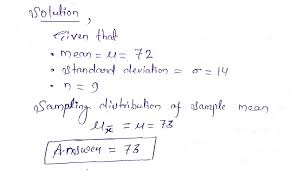 Solution,
Given that
• mean = μ = 72
• Standard deviation = σ = 14
• n = 9
Sampling distribution of sample mean
μx̄ = μ = 73
Answer = 73